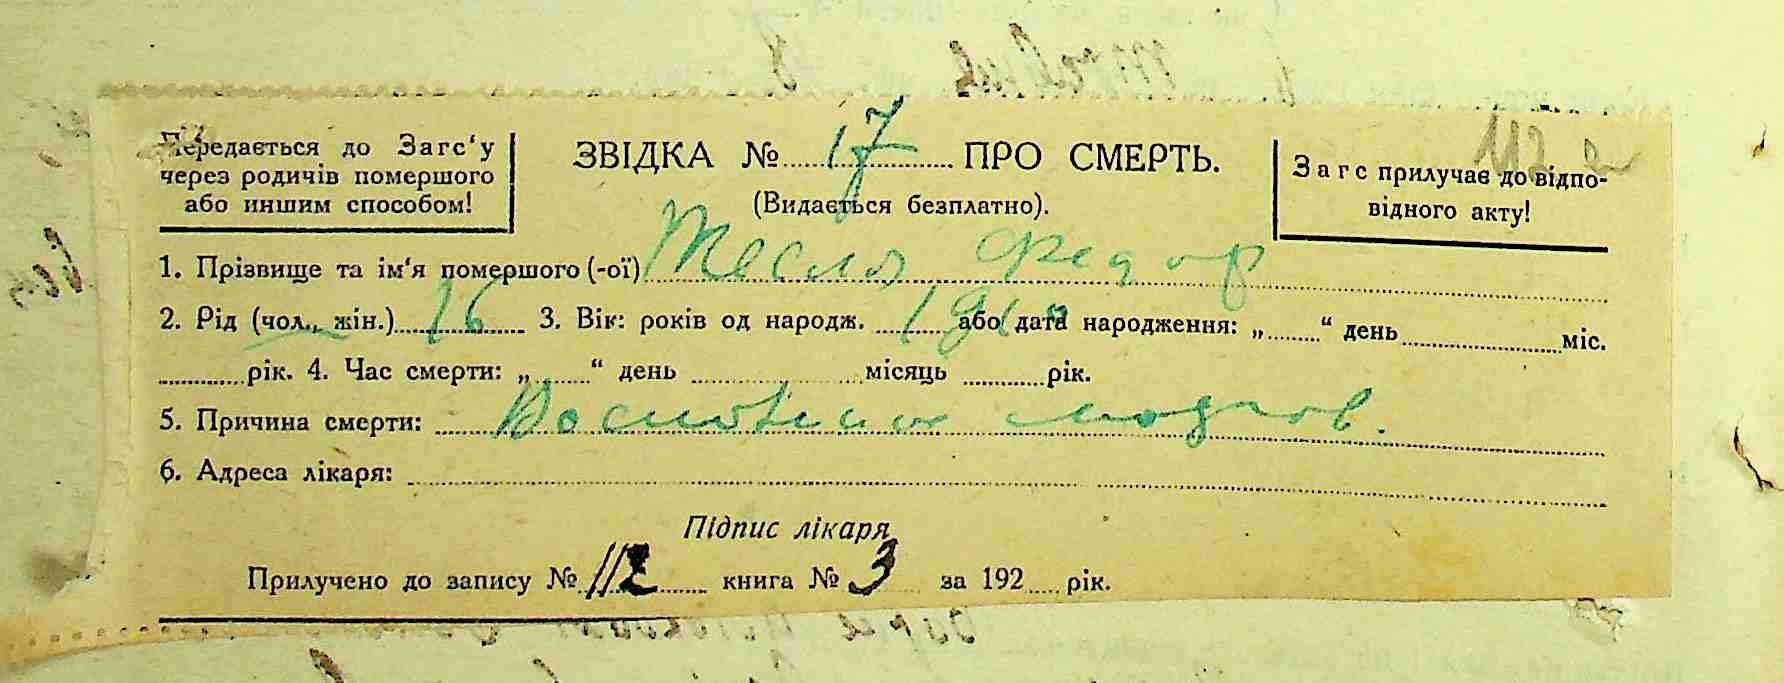 Передається до Загс‘у
через родичів помершого
або иншим способом!
ЗВІДКА № 17 ПРО СМЕРТЬ.
(Видається безплатно).
Загс прилучає до відпо-
відного акту!
1. Прізвище та ім‘я помершого (-ої) Тесля Федор
2. Рід (чол., жін.) 16 3. Вік: років од народж. або дата народження: „ “ день міс.
рік. 4. Час смерти: „ “ день місяць рік.
5. Причина смерти:
6. Адреса лікаря:
Підпис лікаря
Прилучено до запису № 112 книга № 3 за 192 рік.